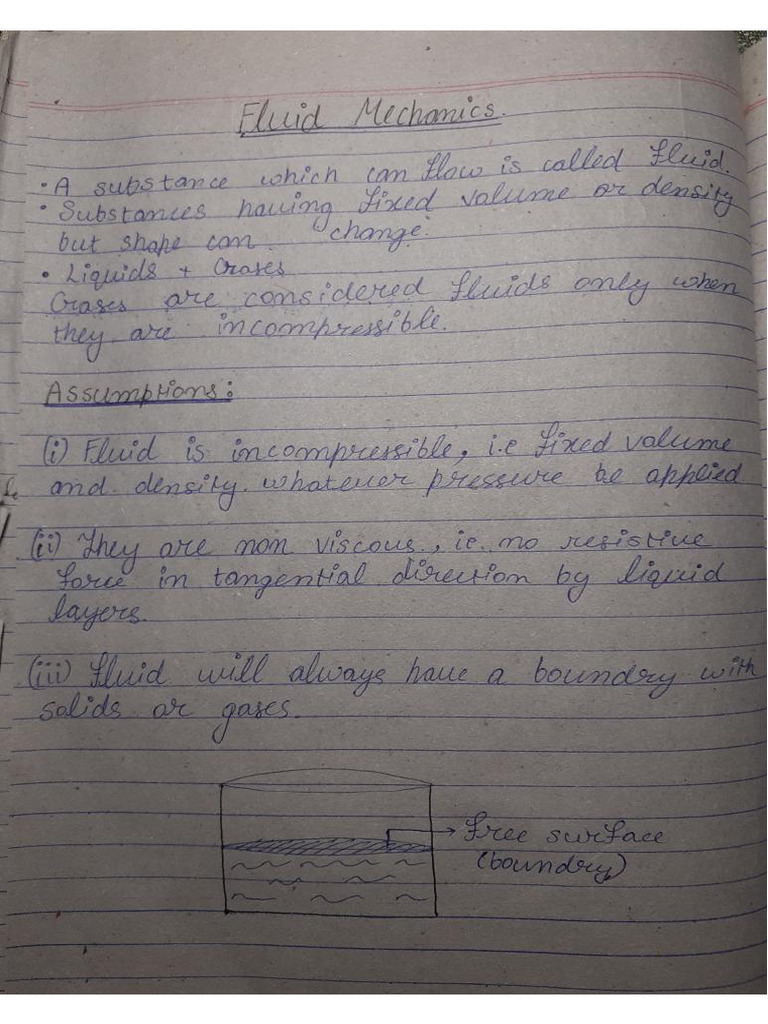 Fluid Mechanics.
• A substance which can flow is called fluid.
• Substances having fixed volume or density
but shape can change.
• Liquids + Gases
Gases are considered fluids only when
they are incompressible.
Assumptions:
(i) Fluid is incompressible, i.e fixed volume
and density whatever pressure be applied
(ii) They are non viscous, ie. no resistive
force in tangential direction by liquid
layers.
(iii) Fluid will always have a boundry with
solids or gases.
free surface
(boundry)